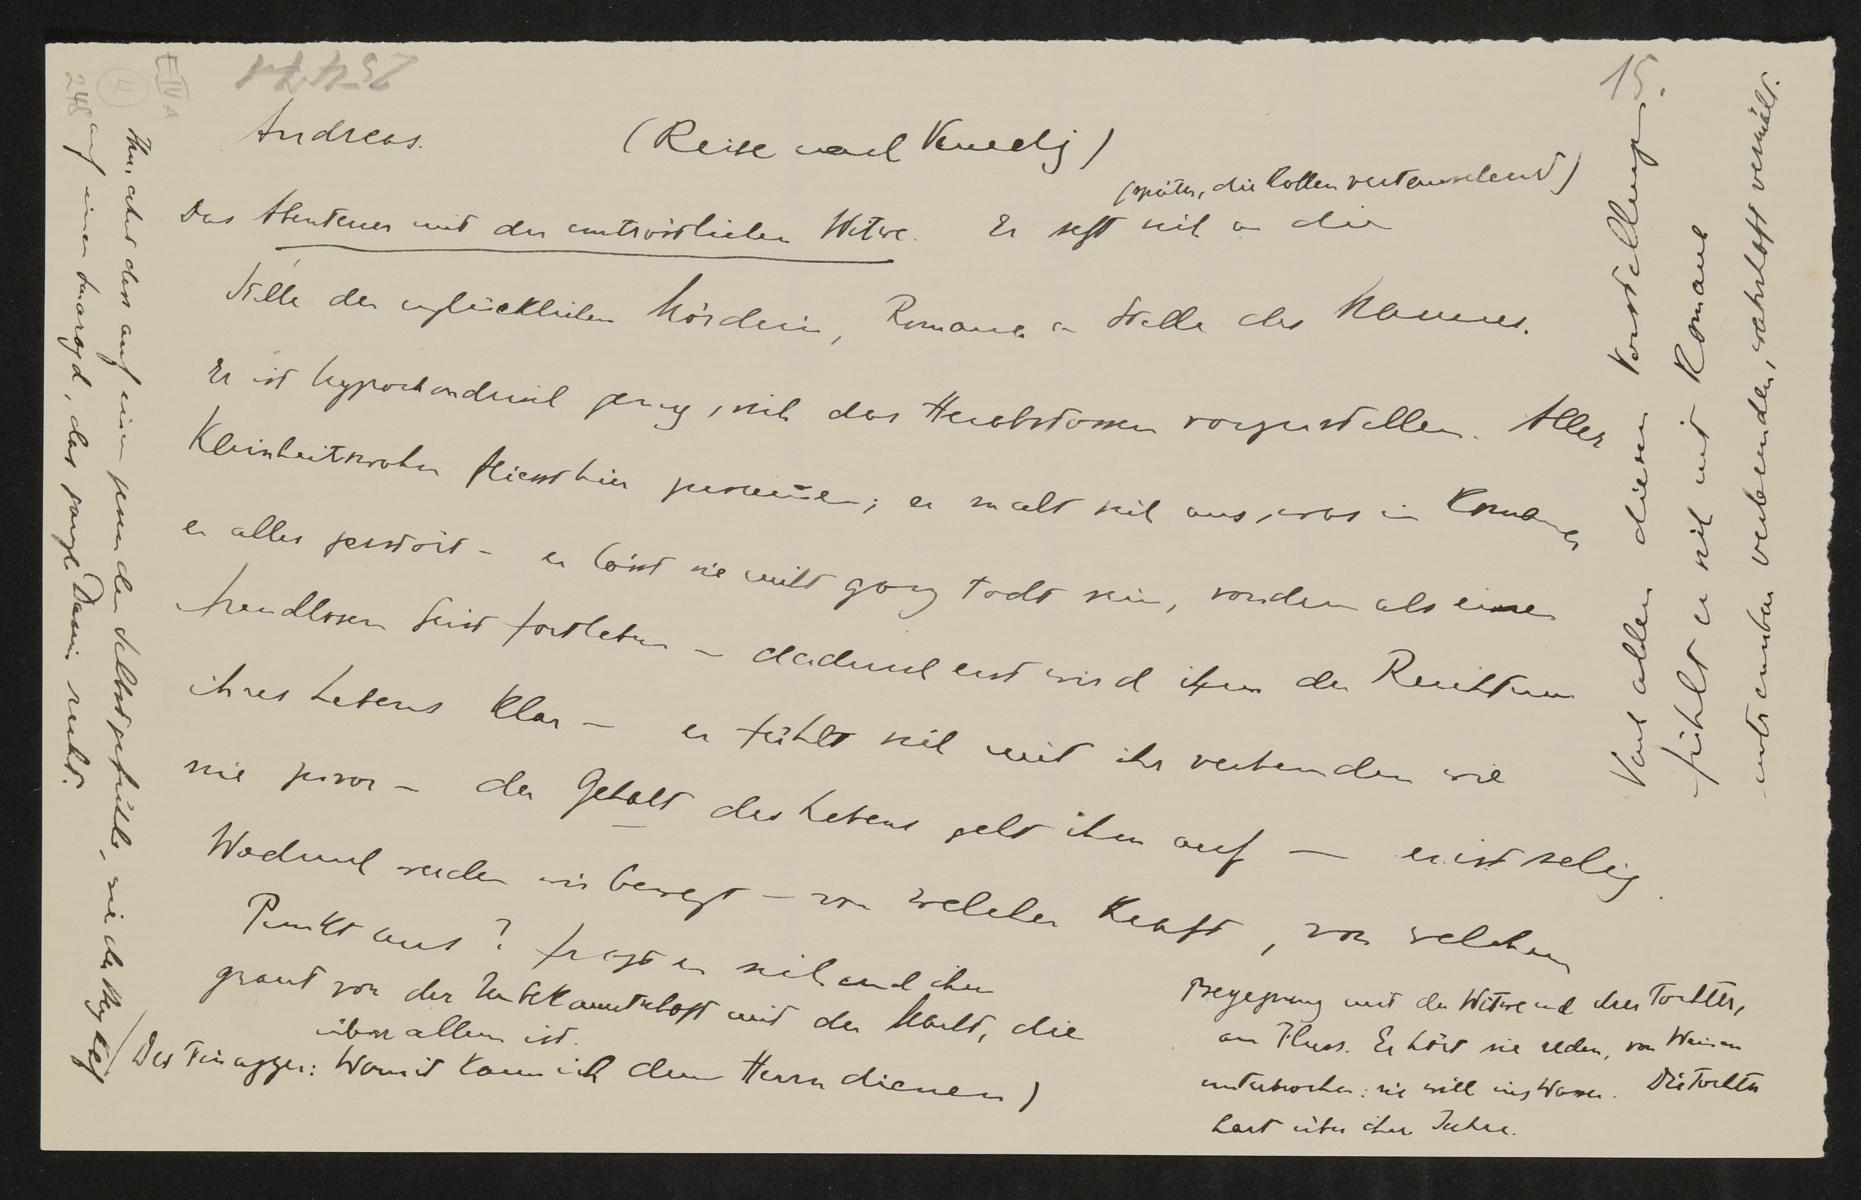 E IV A
4
248
15.
Andreas. (Reise nach Venedig)
(später, die Rollen vertauschend)
Das Abenteuer mit der untröstlichen Witwe. Er setzt sich an die
Stelle der unglücklichen Mörderin, Romana an Stelle des Mannes.
Er ist hypochondrisch genug, sich das Herabstossen vorzustellen. Aller
Kleinheitswahn fliesst hier zusammen; er malt sich aus, was in Romana
er alles zerstört – er lässt sie nicht ganz todt sein, sondern als einen
freudlosen Geist fortleben – dadurch erst wird ihm der Reichtum
ihres Lebens klar – er fühlt sich mit ihr verbunden wie
nie zuvor – der Gehalt des Lebens geht ihm auf – er ist selig.
Wodurch werden wir bewegt – von welcher Kraft, von welchem
Punkt aus? fragt er sich und ihm
graut vor der Unbekanntschaft mit der Macht, die
über allem ist.
(Der Finazzer: Womit kann ich dem Herrn dienen)
Begegnung mit der Witwe und ihrer Tochter,
am Fluss. Er hört sie reden, von Weinen
unterbrochen: sie will ins Wasser. Die Tochter
hart über ihre Jahre.
Nach allen diesen Vorstellungen
fühlt er sich mit Romana
unts cheinbar verbunden, wahrhaft vermält.
Ihn ahnt dass auf einem gesunden Selbstgefühle, wie der Berg
auf einem Smaragd, das ganze Dasein ruht.